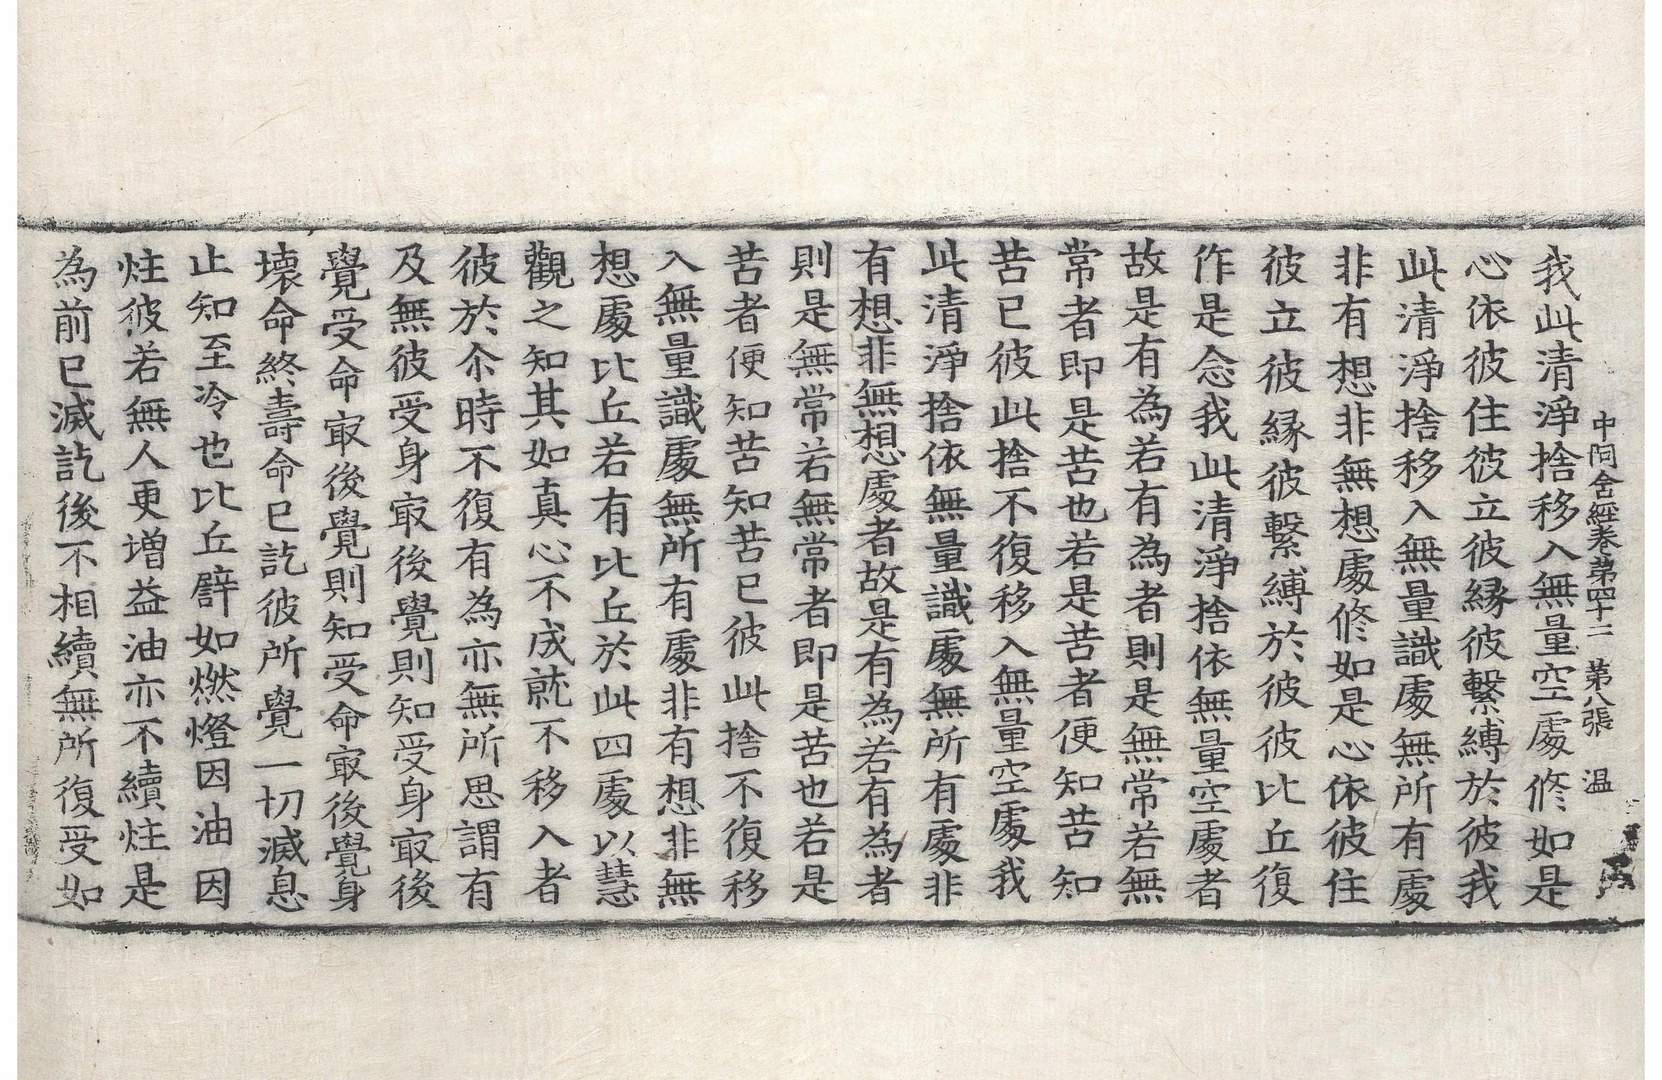 中阿含經卷第四十二　第八張　温
我此清淨捨移入無量空處修如是
心依彼住彼立彼緣彼繫縛於彼我
此清淨捨移入無量識處無所有處
非有想非無想處修如是心依彼住
彼立彼緣彼繫縛於彼彼比丘復
作是念我此清淨捨依無量空處者
故是有為若有為者則是無常若無
常者即是苦也若是苦者便知苦知
苦已彼此捨不復移入無量空處我
此清淨捨依無量識處無所有處非
有想非無想處者故是有為若有為者
則是無常若無常者即是苦也若是
苦者便知苦知苦已彼此捨不復移
入無量識處無所有處非有想非無
想處比丘若有比丘於此四處以慧
觀之知其如真心不成就不移入者
彼於尒時不復有為亦無所思謂有
及無彼受身㝡後覺則知受身㝡後
覺受命㝡後覺則知受命㝡後覺身
壞命終壽命已訖彼所覺一切滅息
止知至冷也比丘譬如燃燈因油因
炷彼若無人更增益油亦不續炷是
為前已滅訖後不相續無所復受如